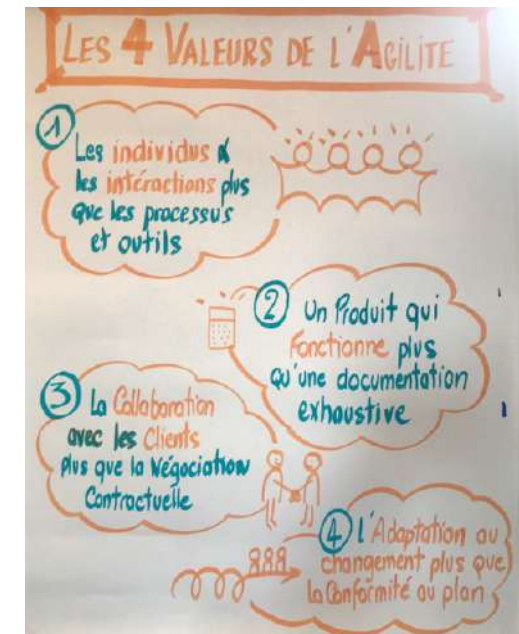 LES 4 VALEURS DE L'AGILITE
1
Les individus &
les intéractions plus
que les processus
et outils
2
Un Produit qui
Fonctionne plus
qu'une documentation
exhaustive
3
La Collaboration
avec les Clients
plus que la Négociation
Contractuelle
4
l'Adaptation au
changement plus que
la Conformité au plan